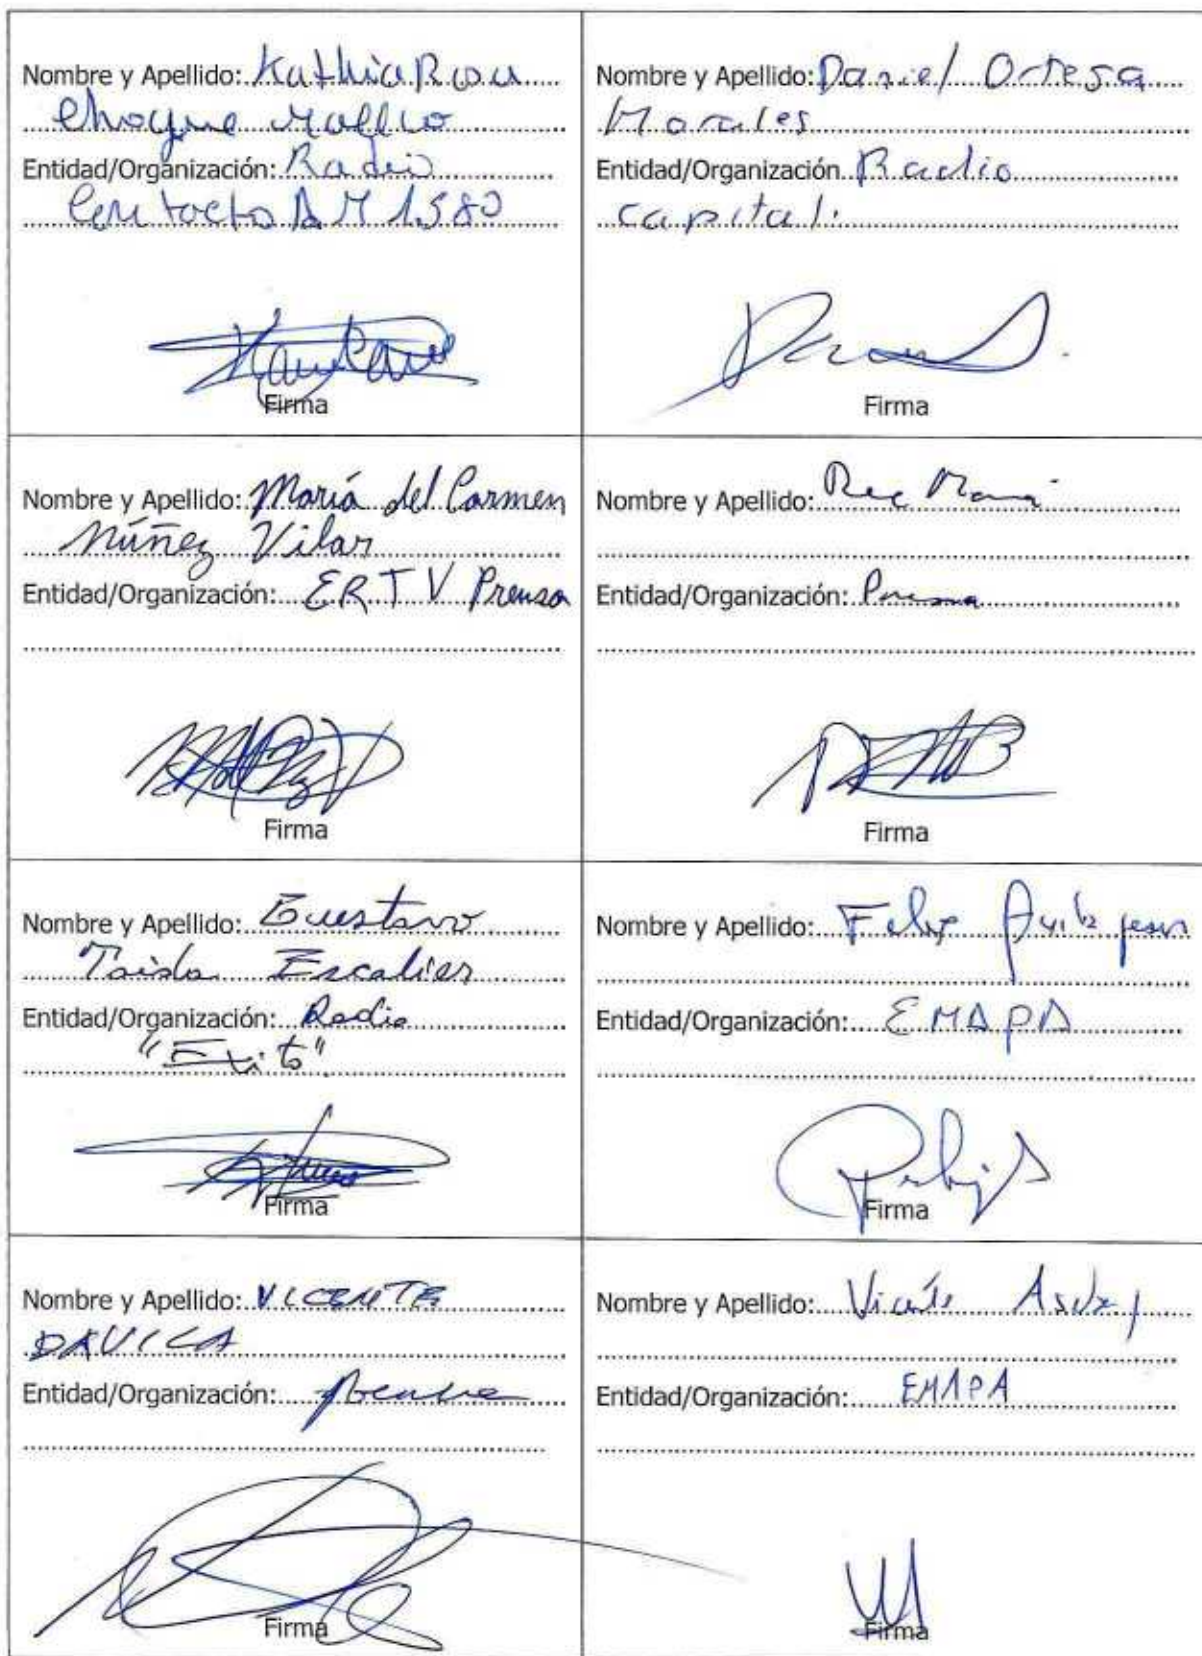 Nombre y Apellido: Kathia Rosa
Choque Mallco
Entidad/Organización: Radio
Contacto AM 1580
Firma
Nombre y Apellido: Daniel Ortega
Morales
Entidad/Organización Radio
capital
Firma
Nombre y Apellido: María del Carmen
Núñez Vilar
Entidad/Organización: ERTV Prensa
Firma
Nombre y Apellido:
Entidad/Organización: Prensa
Firma
Nombre y Apellido: Gustavo
Escalier
Entidad/Organización: Radio
"Exito"
Firma
Nombre y Apellido: Felix
Entidad/Organización: EMAPA
Firma
Nombre y Apellido: VICENTE
DAVILA
Entidad/Organización:
Firma
Nombre y Apellido: Vicente
Entidad/Organización: EMAPA
Firma